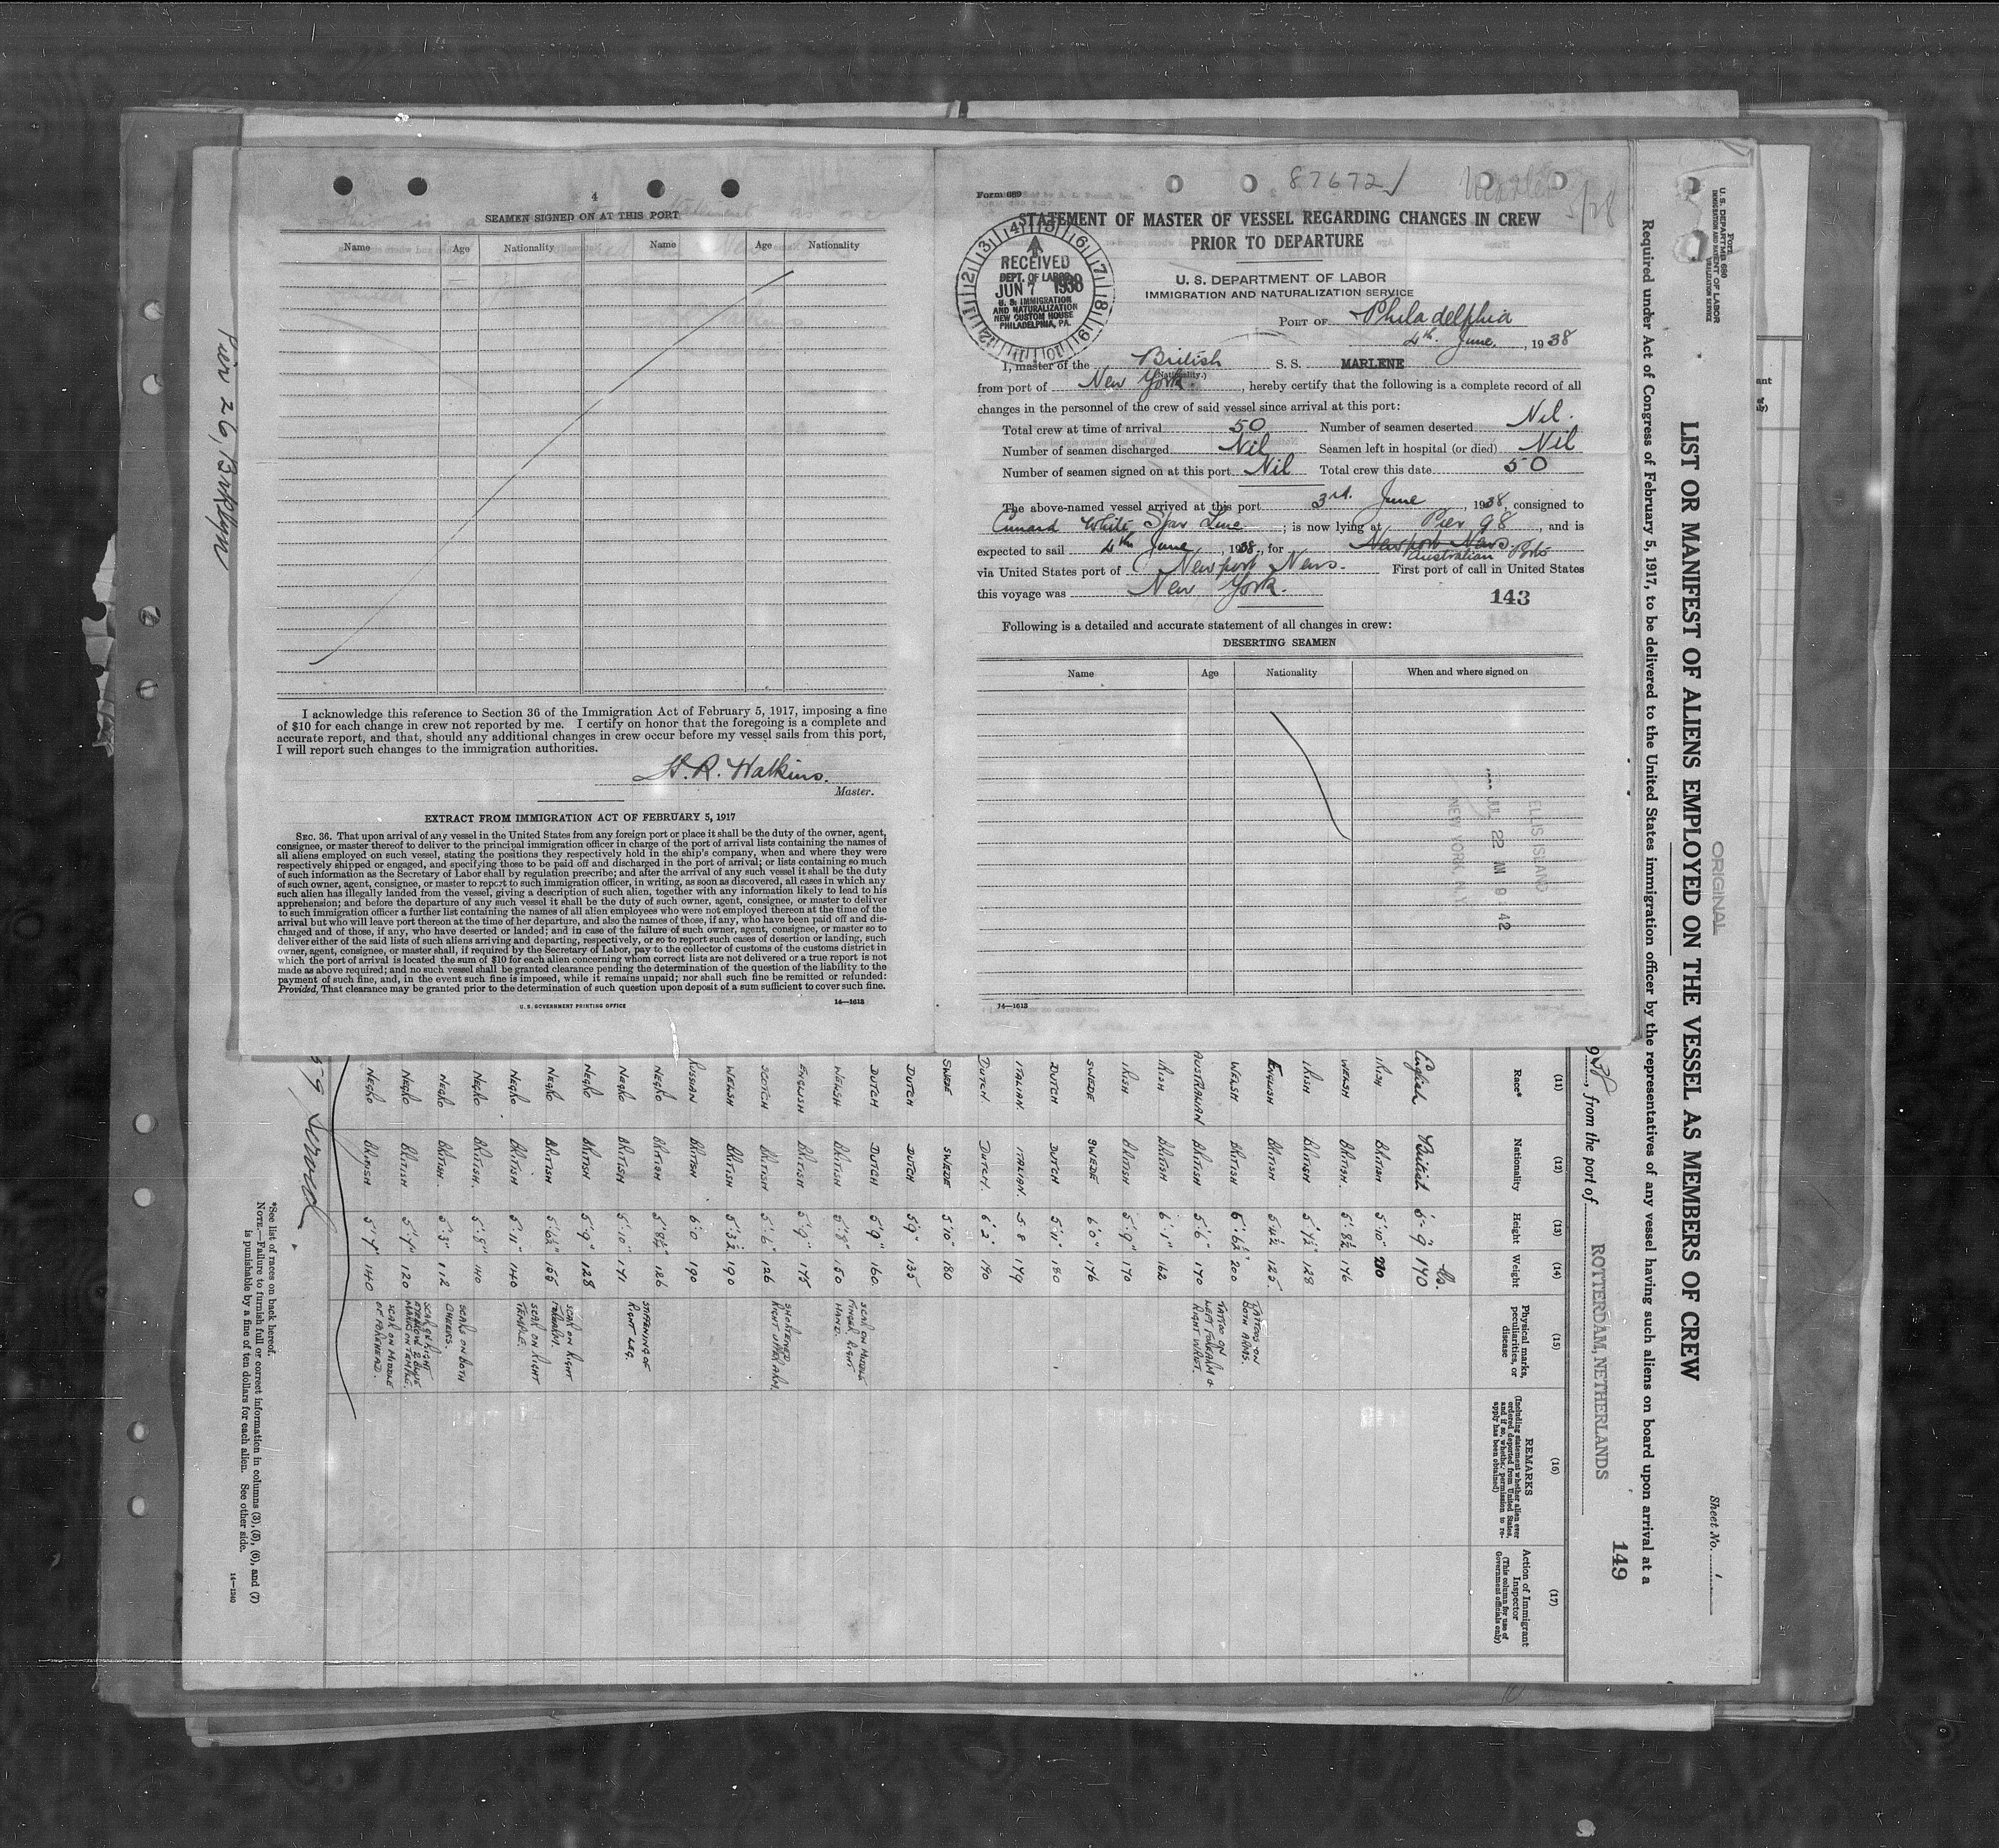 4
SEAMEN SIGNED ON AT THIS PORT
Name Age Nationality Name Age Nationality
I acknowledge this reference to Section 36 of the Immigration Act of February 5, 1917, imposing a fine
of $10 for each change in crew not reported by me. I certify on honor that the foregoing is a complete and
accurate report, and that, should any additional changes in crew occur before my vessel sails from this port,
I will report such changes to the immigration authorities.
H. R. Watkins.
Master.
EXTRACT FROM IMMIGRATION ACT OF FEBRUARY 5, 1917
SEC. 36. That upon arrival of any vessel in the United States from any foreign port or place it shall be the duty of the owner, agent,
consignee, or master thereof to deliver to the principal immigration officer in charge of the port of arrival lists containing the names of
all aliens employed on such vessel, stating the positions they respectively hold in the ship's company, when and where they were
respectively shipped or engaged, and specifying those to be paid off and discharged in the port of arrival; or lists containing so much
of such information as the Secretary of Labor shall by regulation prescribe; and after the arrival of any such vessel it shall be the duty
of such owner, agent, consignee, or master to report to such immigration officer, in writing, as soon as discovered, all cases in which any
such alien has illegally landed from the vessel, giving a description of such alien, together with any information likely to lead to his
apprehension; and before the departure of any such vessel it shall be the duty of such owner, agent, consignee, or master to deliver
to such immigration officer a further list containing the names of all alien employees who were not employed thereon at the time of the
arrival but who will leave port thereon at the time of her departure, and also the names of those, if any, who have been paid off and dis-
charged and of those, if any, who have deserted or landed; and in case of the failure of such owner, agent, consignee, or master so to
deliver either of the said lists of such aliens arriving and departing, respectively, or so to report such cases of desertion or landing, such
owner, agent, consignee, or master shall, if required by the Secretary of Labor, pay to the collector of customs of the customs district in
which the port of arrival is located the sum of $10 for each alien concerning whom correct lists are not delivered or a true report is not
made as above required; and no such vessel shall be granted clearance pending the determination of the question of the liability to the
payment of such fine, and, in the event such fine is imposed, while it remains unpaid; nor shall such fine be remitted or refunded:
Provided, That clearance may be granted prior to the determination of such question upon deposit of a sum sufficient to cover such fine.
U. S. GOVERNMENT PRINTING OFFICE 14—1613
Form 689
87672
5/28
STATEMENT OF MASTER OF VESSEL REGARDING CHANGES IN CREW
PRIOR TO DEPARTURE
RECEIVED
DEPT. OF LABOR
JUN 7 1938
U. S. IMMIGRATION
AND NATURALIZATION
NEW CUSTOM HOUSE
PHILADELPHIA, PA.
U. S. DEPARTMENT OF LABOR
IMMIGRATION AND NATURALIZATION SERVICE
PORT OF Philadelphia
4th June, , 1938
I, master of the British S. S. MARLENE
(Nationality.)
from port of New York. , hereby certify that the following is a complete record of all
changes in the personnel of the crew of said vessel since arrival at this port:
Total crew at time of arrival 50 Number of seamen deserted Nil.
Number of seamen discharged Nil Seamen left in hospital (or died) Nil
Number of seamen signed on at this port Nil Total crew this date 50
The above-named vessel arrived at this port 3rd. June , 1938, consigned to
Cunard White Star Line ; is now lying at Pier 98 , and is
expected to sail 4th June , 1938., for Newport News Australian Ports
via United States port of Newport News. First port of call in United States
this voyage was New York.
143
Following is a detailed and accurate statement of all changes in crew:
DESERTING SEAMEN
Name Age Nationality When and where signed on
ELLIS ISLAND
JUL 22 AM 9 42
NEW YORK, N.Y.
14—1613
Pier 26, Brklyn
Form 689
U. S. DEPARTMENT OF LABOR
IMMIGRATION AND NATURALIZATION SERVICE
ORIGINAL
Sheet No. 1
LIST OR MANIFEST OF ALIENS EMPLOYED ON THE VESSEL AS MEMBERS OF CREW
Required under Act of Congress of February 5, 1917, to be delivered to the United States immigration officer by the representatives of any vessel having such aliens on board upon arrival at a
938, from the port of ROTTERDAM, NETHERLANDS
149
(11) (12) (13) (14) (15) (16) (17)
Race* Nationality Height Weight Physical marks, peculiarities, or disease REMARKS (Including statement whether alien ever ordered deported from United States, and if so, whether permission to re-apply has been obtained) Action of Immigrant Inspector (This column for use of Government officials only)
lbs.
English British 5-9 170
IRISH BRITISH 5'10" 210
WELSH BRITISH. 5'8½ 176
IRISH BRITISH 5'7½" 128
ENGLISH BRITISH 5'4½ 125.
WELSH BRITISH 5'6½" 200 TATTOOS ON BOTH ARMS.
AUSTRALIAN BRITISH 5'6" 170 TATTOO ON LEFT FOREARM & RIGHT WRIST.
IRISH BRITISH 6'1" 162
IRISH BRITISH 5'9" 170
SWEDE SWEDE 6'0" 176
DUTCH DUTCH 5'11" 180
ITALIAN ITALIAN. 5-8 179
DUTCH DUTCH. 6'2" 190
SWEDE SWEDE 5'10" 180
DUTCH DUTCH 5'9" 135
DUTCH DUTCH 5'9" 160.
WELSH BRITISH 5'8" 150 SCAR ON MIDDLE FINGER RIGHT HAND.
ENGLISH BRITISH 5'9" 175
SCOTCH BRITISH 5'6" 126 SHORTENED RIGHT UPPER ARM.
WELSH BRITISH 5'3½ 190
RUSSIAN BRITISH 6'0 190
NEGRO BRITISH 5'8½" 126
NEGRO BRITISH. 5'10" 171 STIFFENING OF RIGHT LEG.
NEGRO BRITISH 5'9" 128
NEGRO BRITISH 5'6½" 155 SCAR ON RIGHT FOREARM.
NEGRO BRITISH 5'11" 140 SCAR ON RIGHT TEMPLE.
NEGRO BRITISH. 5'8" 140
NEGRO BRITISH. 5'3" 112 SCARS ON BOTH CHEEKS.
NEGRO BRITISH 5'7" 120
NEGRO BRITISH 5'7" 140 SCAR ON MIDDLE OF FOREHEAD.
*See list of races on back hereof.
NOTE.—Failure to furnish full or correct information in columns (3), (5), (6), and (7)
is punishable by a fine of ten dollars for each alien. See other side.
14—1240